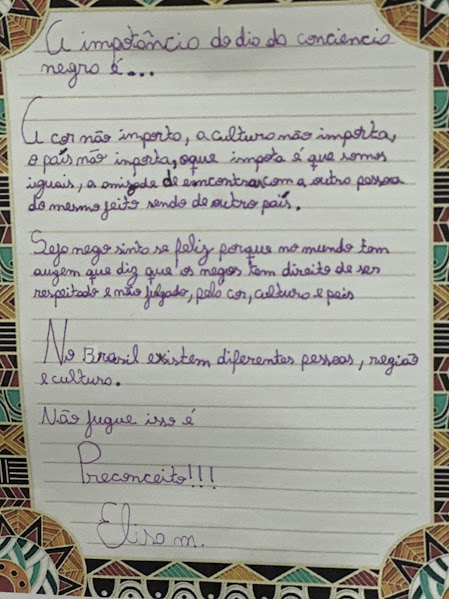 A impotância do dia da conciencia
negra é...
A cor não importa, a cultura não importa,
o país não inporta, oque impota é que somos
iguais, a amizade de emcontras com a outra pessoa
do mesmo jeito sendo de outro país.
Seje nego sinta se feliz porque no mundo tem
augem que diz que os negos tem direito de ser
respeitado e não julgado, pelo cor, cultura e pais
No Brasil existem diferentes pessoas, região
e cultura.
Não jugue isso é
Preconceito!!!
Elisa m.